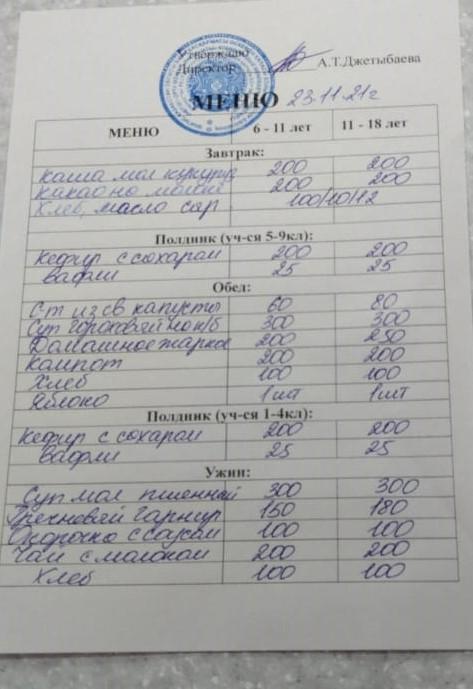 Утверждаю
Директор А.Т.Джетыбаева
МЕНЮ 23.11.21г
МЕНЮ 6 - 11 лет 11 - 18 лет
Завтрак:
Каша мол кукуруз 200 200
Какао на молоке 200 200
Хлеб, масло сыр 100/10/12
Полдник (уч-ся 5-9кл):
Кефир с сахаром 200 200
Вафли 25 25
Обед:
С-т из св капусты 60 80
Суп гороховый на к/б 300 300
Домашнее жаркое 200 250
Компот 200 200
Хлеб 100 100
Яблоко 1 шт 1 шт
Полдник (уч-ся 1-4кл):
Кефир с сахаром 200 200
Вафли 25 25
Ужин:
Суп мол пшенный 300 300
Гречневый гарнир 150 180
Окорочка с соусом 100 100
Чай с молоком 200 200
Хлеб 100 100